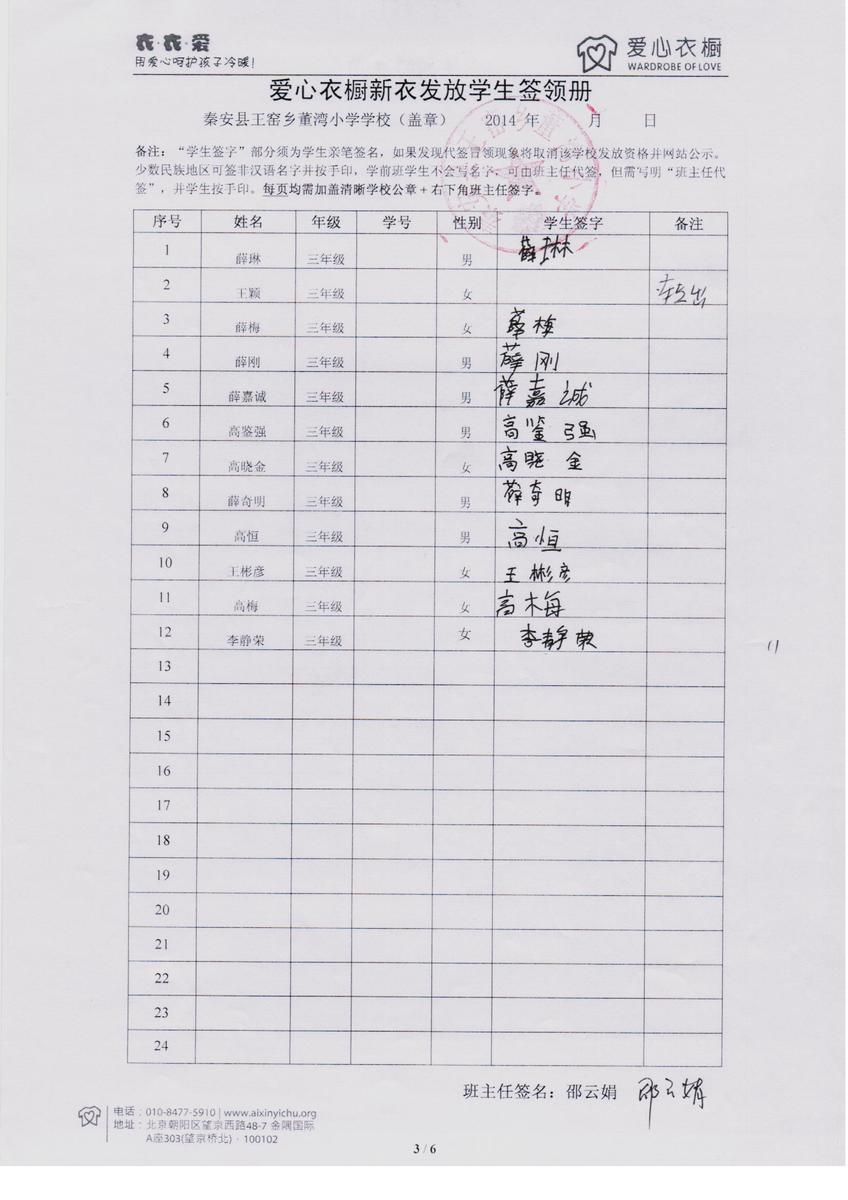 衣·衣·爱
用爱心呵护孩子冷暖！
爱心衣橱
WARDROBE OF LOVE
爱心衣橱新衣发放学生签领册
秦安县王窑乡董湾小学学校（盖章） 2014 年 月 日
备注：“学生签字”部分须为学生亲笔签名，如果发现代签冒领现象将取消该学校发放资格并网站公示。
少数民族地区可签非汉语名字并按手印，学前班学生不会写名字，可由班主任代签，但需写明“班主任代
签”，并学生按手印。每页均需加盖清晰学校公章+右下角班主任签字。
序号 姓名 年级 学号 性别 学生签字 备注
1 薛琳 三年级 男 薛琳
2 王颖 三年级 女 转出
3 薛梅 三年级 女 薛梅
4 薛刚 三年级 男 薛刚
5 薛嘉诚 三年级 男 薛嘉诚
6 高鉴强 三年级 男 高鉴强
7 高晓金 三年级 女 高晓金
8 薛奇明 三年级 男 薛奇明
9 高恒 三年级 男 高恒
10 王彬彦 三年级 女 王彬彦
11 高梅 三年级 女 高梅
12 李静荣 三年级 女 李静荣
11
13
14
15
16
17
18
19
20
21
22
23
24
班主任签名：邵云娟 邵云娟
电话：010-8477-5910 | www.aixinyichu.org
地址：北京朝阳区望京西路48-7 金隅国际
A座303(望京桥北) · 100102
3 / 6